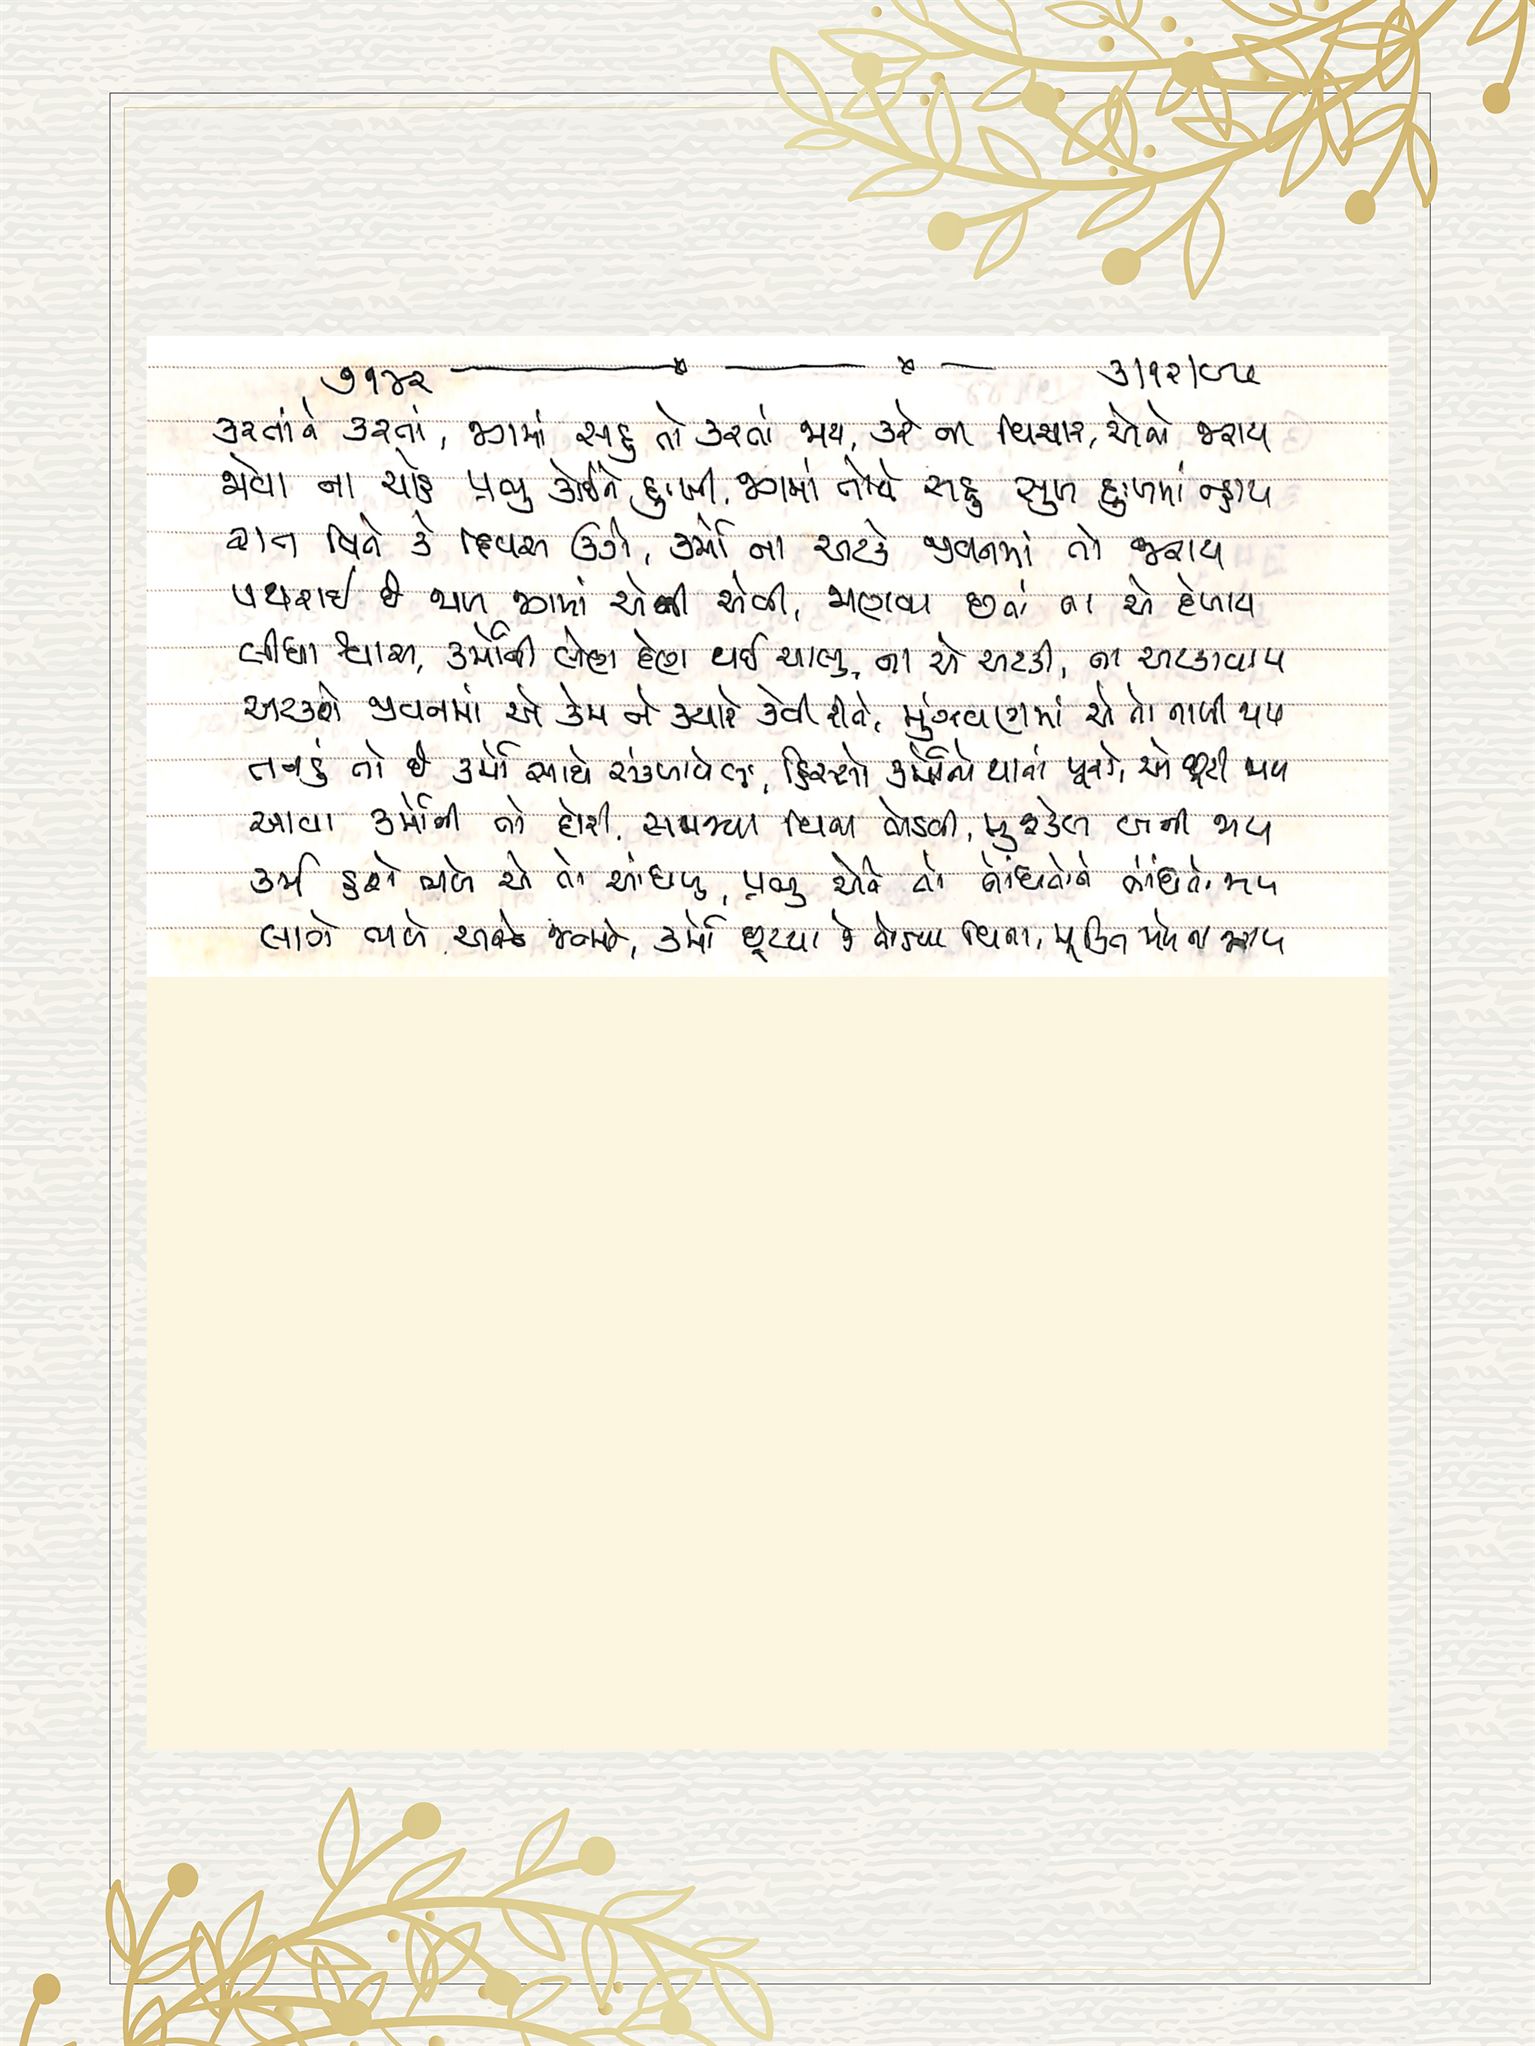 ૭૧૪૨ ૩/૧૨/૯૫
કરતાંને કરતાં, જગમાં સહુ તો કરતાં જાય, કરે ના વિચાર, એવો જરાય
જોવા ના ચાહે પ્રભુ કોઈને દુઃખી, જગમાં તોયે સહુ સુખ દુઃખમાં ન્હાય
રાત વિતે કે દિવસ ઉગે, કર્મો ના અટકે જીવનમાં તો જરાય
પથરાઈ છે જાળ જગમાં એની એવી, જાણવા છતાં ના એ દેખાય
લીધા શ્વાસ, કર્મોની લેણા દેણી થઈ ચાલુ, ના એ અટકી, ના અટકાવાય
અટકશે જીવનમાં એ કેમ ને ક્યારે કેવી રીતે, મુંઝવણમાં એ તો નાખી જાય
તનડું તો છે કર્મો સાથે સંકળાયેલું, હિસ્સો કર્મોનો થાતાં પૂરો, એ છૂટી જાય
આવા કર્મોની તો દોરી, સમજ્યા વિના તોડવી, મુશ્કેલ બની જાય
કર્મ હશે ભલે એ તો આંધળુ, પ્રભુ એને તો બાંધતોને બાંધતો જાય
લાગે ભલે જનમો, કર્મો છૂટયા કે તોડયા વિના, મુક્તિ ના જરાય